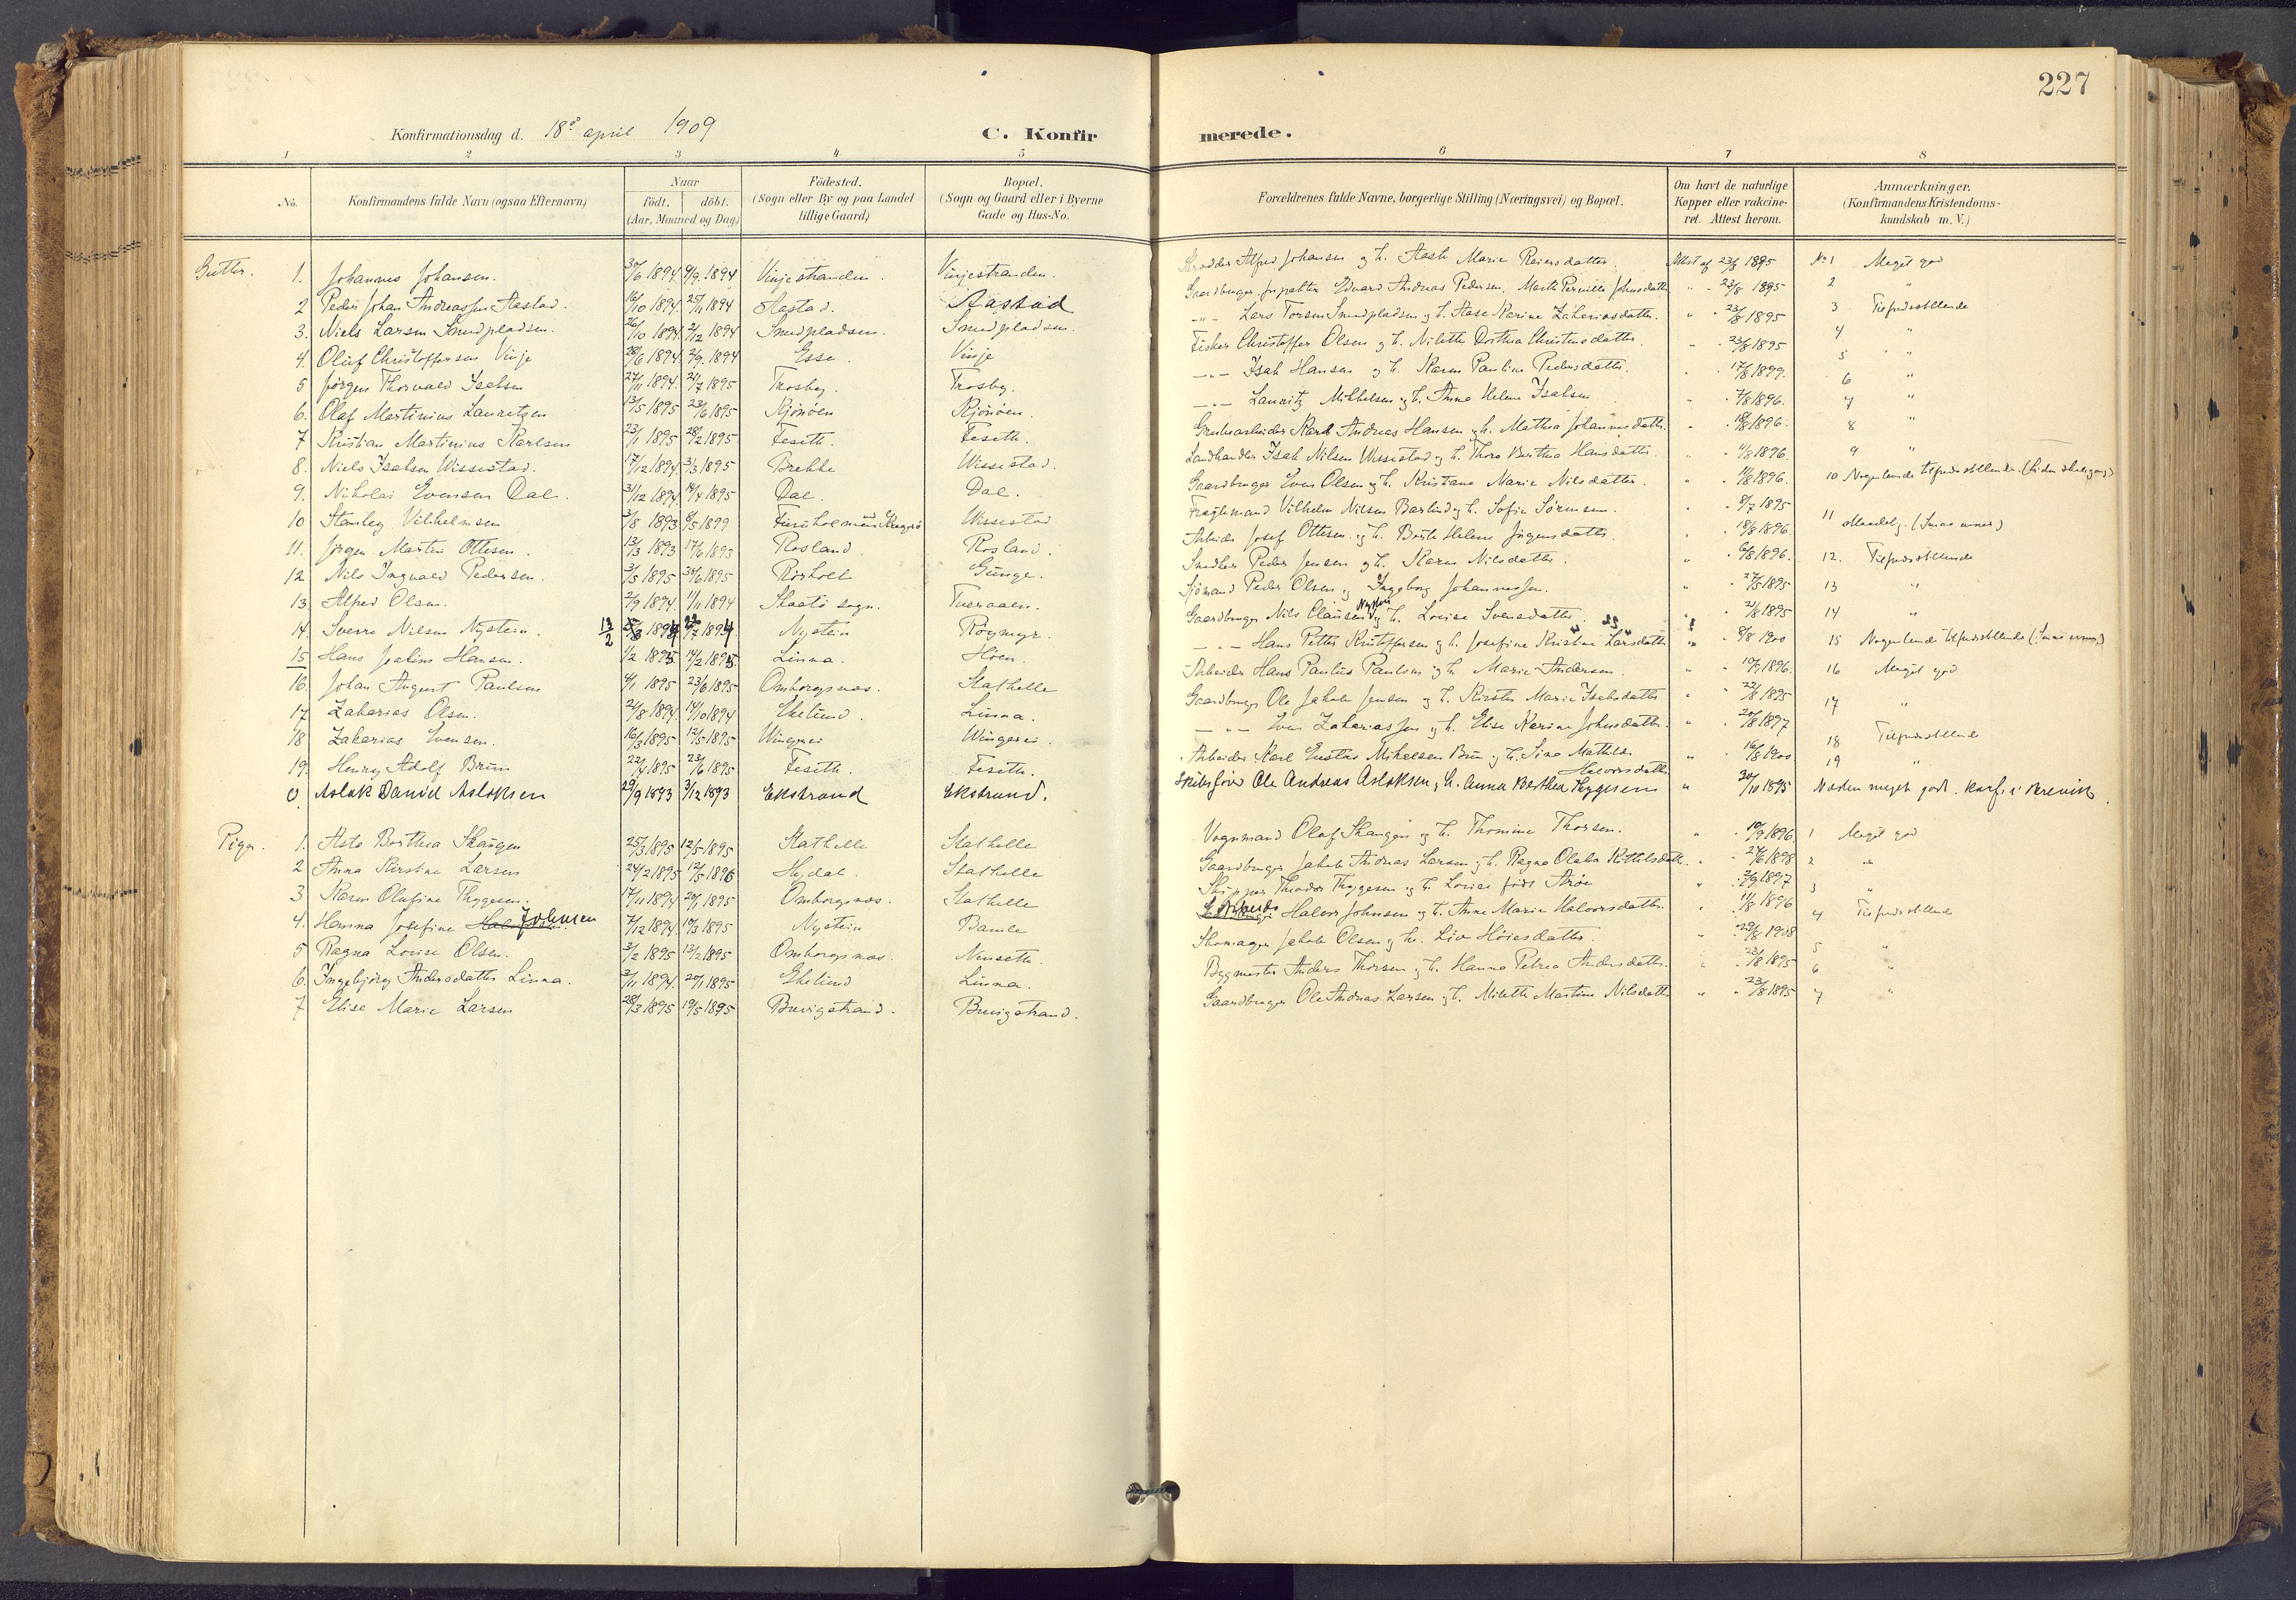 227
Konfirmationsdag d. 18de april 1909
C. Konfirmerede.
1 2 3 4 5 6 7 8
No. Konfirmandens fulde Navn (ogsaa Efternavn) Naar födt. döbt. (Aar, Maaned og Dag) Födested. (Sogn eller By og paa Landet tillige Gaard) Bopæl. (Sogn og Gaard eller i Byerne Gade og Hus-No. Forældrenes fulde Navne, borgerlige Stilling (Næringsvei) og Bopæl. Om havt de naturlige Kopper eller vakcineret. Attest herom. Anmærkninger. (Konfirmandens Kristendomskundskab m. V.)
Gutter. 1. Johannes Johansen. 30/6 1894. 9/9. 1894 Vinjestranden. Vinjestranden. Skrædder Alfred Johansen og h. Aaste Marie Reiersdatter. Attest af 23/8 1895 No 1 Meget god
2 Peder Johan Andreassen Aastad. 16/10 1894. 25/11 1894 Aastad. Aastad Gaardbruger, Eduard Andreas Pedersen, Marte Pernille Johnsdatter " " 23/8 1895 2 "
3. Niels Larsen Smedpladsen. 26/10 1894. 2/12 1894 Smedpladsen. Smedpladsen. " Lars Torsen Smedpladsen og h. Aase Karine Zakariasdatter. " " 23/8 1895 3 Tilfredsstillende
4. Oluf Christoffersen Vinje 28/6 1894. 2/9. 1894 Esse. Vinje Fisker Christoffer Olsen og h. Nilette Dorthea Christensdatter. " " 23/8 1895 4 "
5 Jørgen Thorvald Isaksen 27/11 1894. 21/7 1895 Trosby. Trosby. " Isak Hansen og h. Karen Pauline Pedersdatter. " " 17/8 1899. 5 "
6. Olaf Martinius Lauritzen 13/5 1895 23/6 1895 Kjönöen Kjönöen. " Lauritz Mikkelsen og h. Anna Helene Isaksen " " 7/8 1896. 6 "
7 Kristian Martinius Karlsen 23/1 1895 28/2 1895 Feseth. Feseth. Grubearbeider Karl Andreas Hansen og h. Mathea Johannesdatter. " " 18/8 1896. 7 "
8. Niels Isaksen Wissestad. 17/12 1894 3/3 1895 Brekke Wissestad. Landhandler Isak Nilsen Wissestad og h. Thora Berthea Hansdatter. " " 4/8 1896. 8 "
9. Nikolai Evensen Dal. 31/12 1894. 14/4 1895 Dal. Dal. Gaardbruger Even Olsen og h. Kristiane Marie Nilsdatter. " " 11/8 1896. 9 "
10 Stanley Vilhelmsen 3/8 1893 8/5 1899 Furuholmen ved Kragerö Wissestad Fragtemand Vilhelm Nilsen Barlind og h. Sofie Sørensen. " " 8/7 1895 10 Nogenlunde tilfredsstillende. (liden skolegang)
11. Jørgen Martin Ottesen. 13/3 1893 17/6 1893 Rosland. Rosland. Arbeider Josef Ottesen og h. Berte Helene Jörgensdatter. " " 18/8 1896. 11 Maadelig. (Smaa evner)
12 Nils Ingvald Pedersen. 3/5 1895 30/6 1895 Rörholt Gunge. Snedker Peder Jensen og h. Karen Nilsdatter. " " 6/8 1896. 12. Tilfredsstillende
13. Alfred Olsen. 2/9 1894. 11/11 1894 Skaatö sogn. Tveraaen. Sjömand Peder Olsen og Ingeborg Johannessen. " " 27/5 1895 13 "
14. Sverre Nilsen Nystein. 13/2 1894 22/7 1894 Nystein Röymyr. Gaardbruger Nils Clausen Nystein og h. Lovise Svensdatter. " " 21/8 1895 14 "
15 Hans Joakim Hansen. 1/2 1895. 14/2 1895 Linna. Höen. " Hans Petter Kristoffersen og h. Josefine Kristine Larsdatter " " 8/8 1900 15 Nogenlunde tilfredsstillende (Smaa evner)
16. Johan August Paulsen 4/1 1895 23/6 1895 Omborgsnæs. Stathelle Arbeider Hans Paulus Paulsen og h. Marie Andersen. " " 10/9 1896. 16 Meget god
17 Zakarias Olsen. 21/8 1894. 14/10 1894 Ekelund. Linna. Gaardbruger Ole Jakob Jensen og h. Kirstin Marie Isaksdatter " " 22/8 1895 17 "
18 Zakarias Evensen. 16/3 1895 12/5 1895 Wingerei Wingerei. " Even Zakariassen og h. Elise Karine Johnsdatter. " " 20/8 1897 18 Tilfredsstillende
19. Henry Adolf Brun 22/4 1895 23/6 1895 Feseth. Feseth. Arbeider Karl Gustav Mikkelsen Brun og h. Sina Mathilde Halvorsdatter " " 16/8 1900 19 "
0. Aslak Daniel Aslaksen 29/9 1893 3/12 1893 Ekstrand Ekstrand. Skibsfører Ole Andreas Aslaksen, h. Anna Berthea Thygesen " 30/10 1895 Næsten meget godt. Konf. i Brevik.
Piger. 1. Asta Berthea Skaugen 25/3 1895 12/5 1895 Stathelle Stathelle Vognmand Olaf Skaugen og h. Thomine Thorsen. " " 10/9 1896 1 Meget god
2 Anna Kirstine Larsen 24/2 1895 12/5 1896 Hydal. Stathelle Gaardbruger Jakob Andreas Larsen og h. Ragna Olalea Kittilsdatter. " " 27/6 1898 2 "
3 Karen Olufine Thygesen. 17/11 1894 20/1 1895 Omborgsnæs. Stathelle Skipper Theodor Thygesen og h. Lovise født Aröe " " 2/9 1897 3 "
4. Hanna Josefine Johnsen 7/12 1894. 10/3 1895 Nystein Bamle Arbeider Halvor Johnsen og h. Anne Marie Halvorsdatter. " " 11/8 1896 4 Tilfredsstillende
5 Ragna Lovise Olsen. 3/2 1895 13/2 1895 Omborgsnæs. Nenseth. Skomager Jakob Olsen og h. Liv Höiesdatter. " " 29/8 1908 5 "
6. Ingebjörg Andersdatter Linna. 3/11 1894. 20/1 1895 Ekelund Linna. Bygmester Anders Thorsen og h. Hanna Petrea Andersdatter. " " 23/8 1895 6 "
7 Elise Marie Larsen 28/3 1895 19/5 1895 Buvigstrand. Buvigstrand. Gaardbruger Ole Andreas Larsen og h. Milette Martine Nilsdatter " " 23/8 1895 7 "